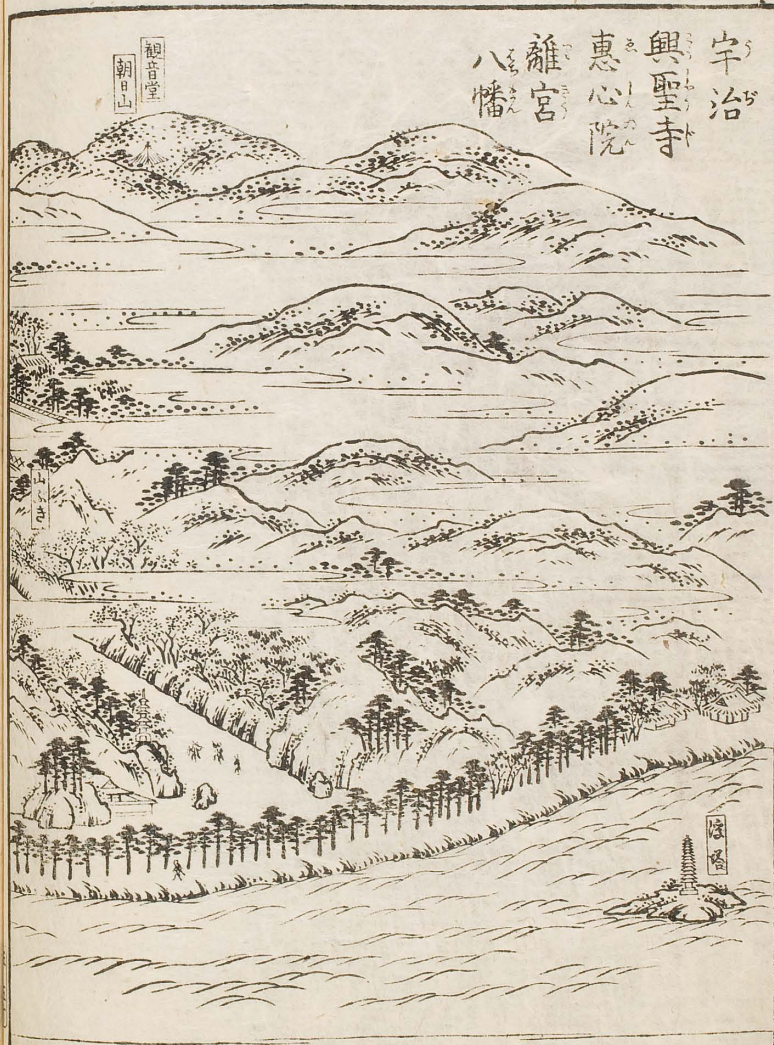 宇治
興聖寺
恵心院
離宮
八幡
観音堂
朝日山
山ふき
浮塔